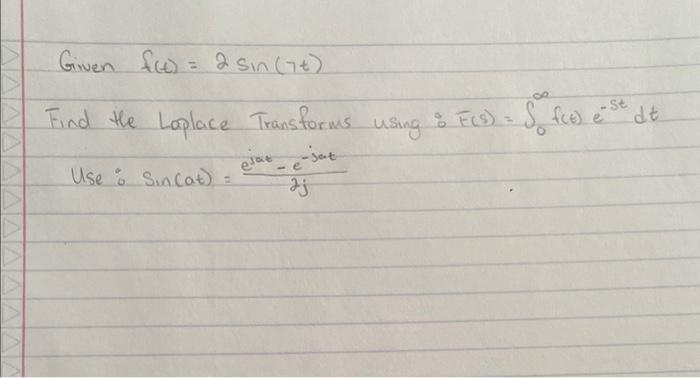 Given f(t) = 2 sin(7t)
Find the Laplace Transforms using : F(s) = ∫₀^∞ f(t) e^-st dt
Use : Sin(at) = (e^jat - e^-jat) / 2j